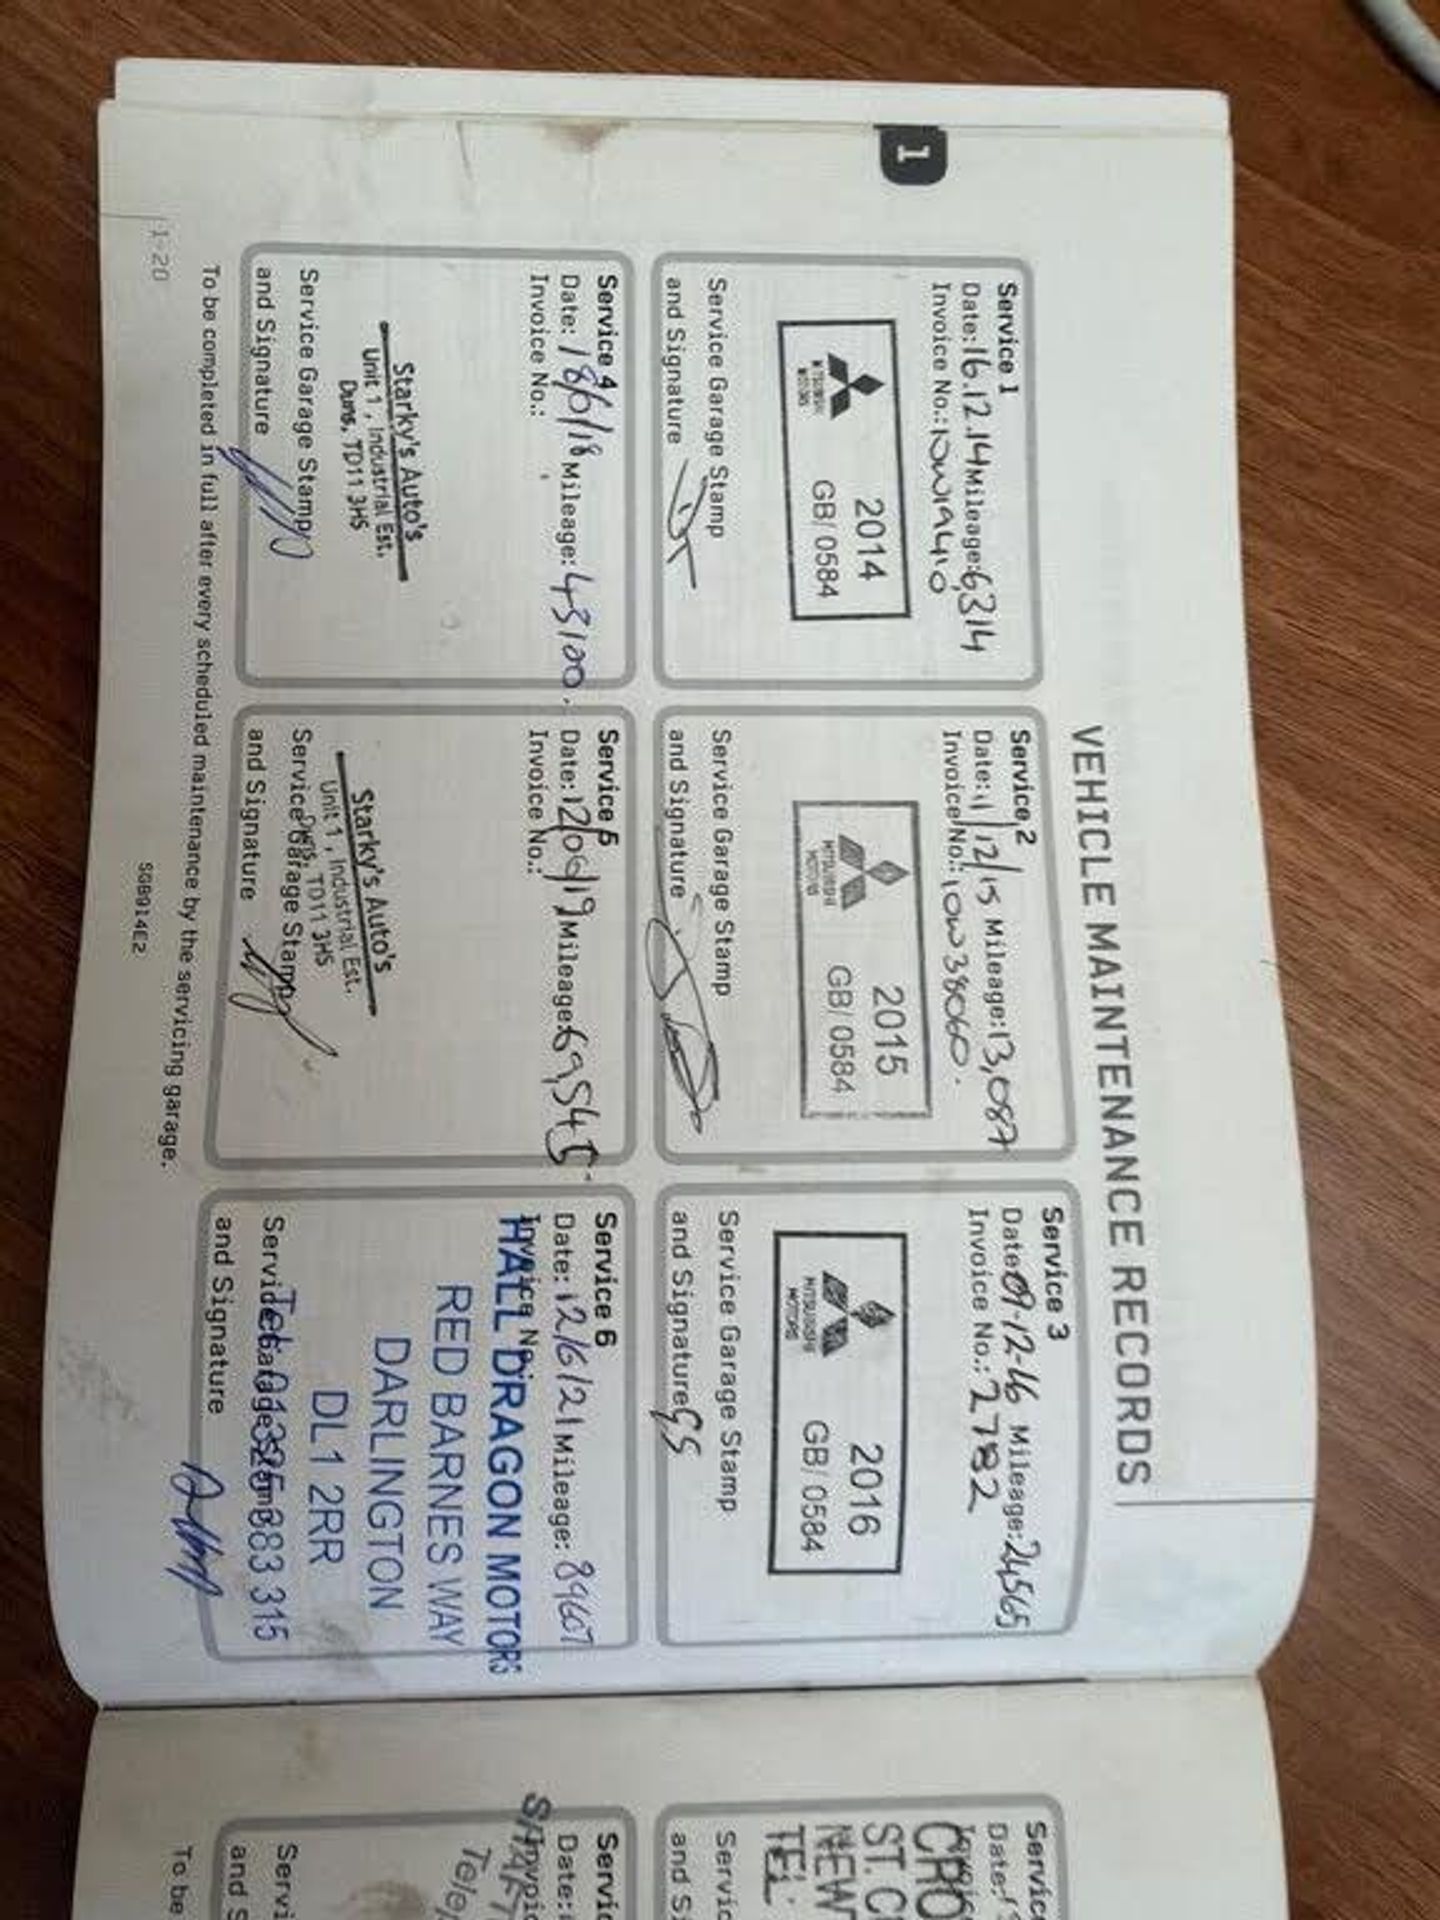 1
VEHICLE MAINTENANCE RECORDS
Service 1
Date: 16.12.14 Mileage: 6,314
Invoice No.: 10W19410
2014
MITSUBISHI MOTORS
GB/0584
Service Garage Stamp
and Signature
Service 2
Date: 11/12/15 Mileage: 13,087
Invoice No.: 10W38060.
2015
MITSUBISHI MOTORS
GB/0584
Service Garage Stamp
and Signature
Service 3
Date: 09-12-16 Mileage: 24,565
Invoice No.: 2782
2016
MITSUBISHI MOTORS
GB/0584
Service Garage Stamp
and Signature GS
Service 4
Date: 18/6/18 Mileage: 43100.
Invoice No.:
Starky's Auto's
Unit 1, Industrial Est.
Duns, TD11 3HS
Service Garage Stamp
and Signature
Service 5
Date: 12/06/19 Mileage: 69,545
Invoice No.:
Starky's Auto's
Unit 1, Industrial Est.
Duns, TD11 3HS
Service Garage Stamp
and Signature
Service 6
Date: 12/6/21 Mileage: 89607
Invoice No.:
HALL DRAGON MOTORS
RED BARNES WAY
DARLINGTON
DL1 2RR
Tel: 01325 383 315
Service Garage Stamp
and Signature
To be completed in full after every scheduled maintenance by the servicing garage.
1-20
SGB914E2
Service
Date:
CRO
ST. C
NEW
TEL:
Servic
and S
Servic
Date:
Invoic
Tele
Servi
and S
To be